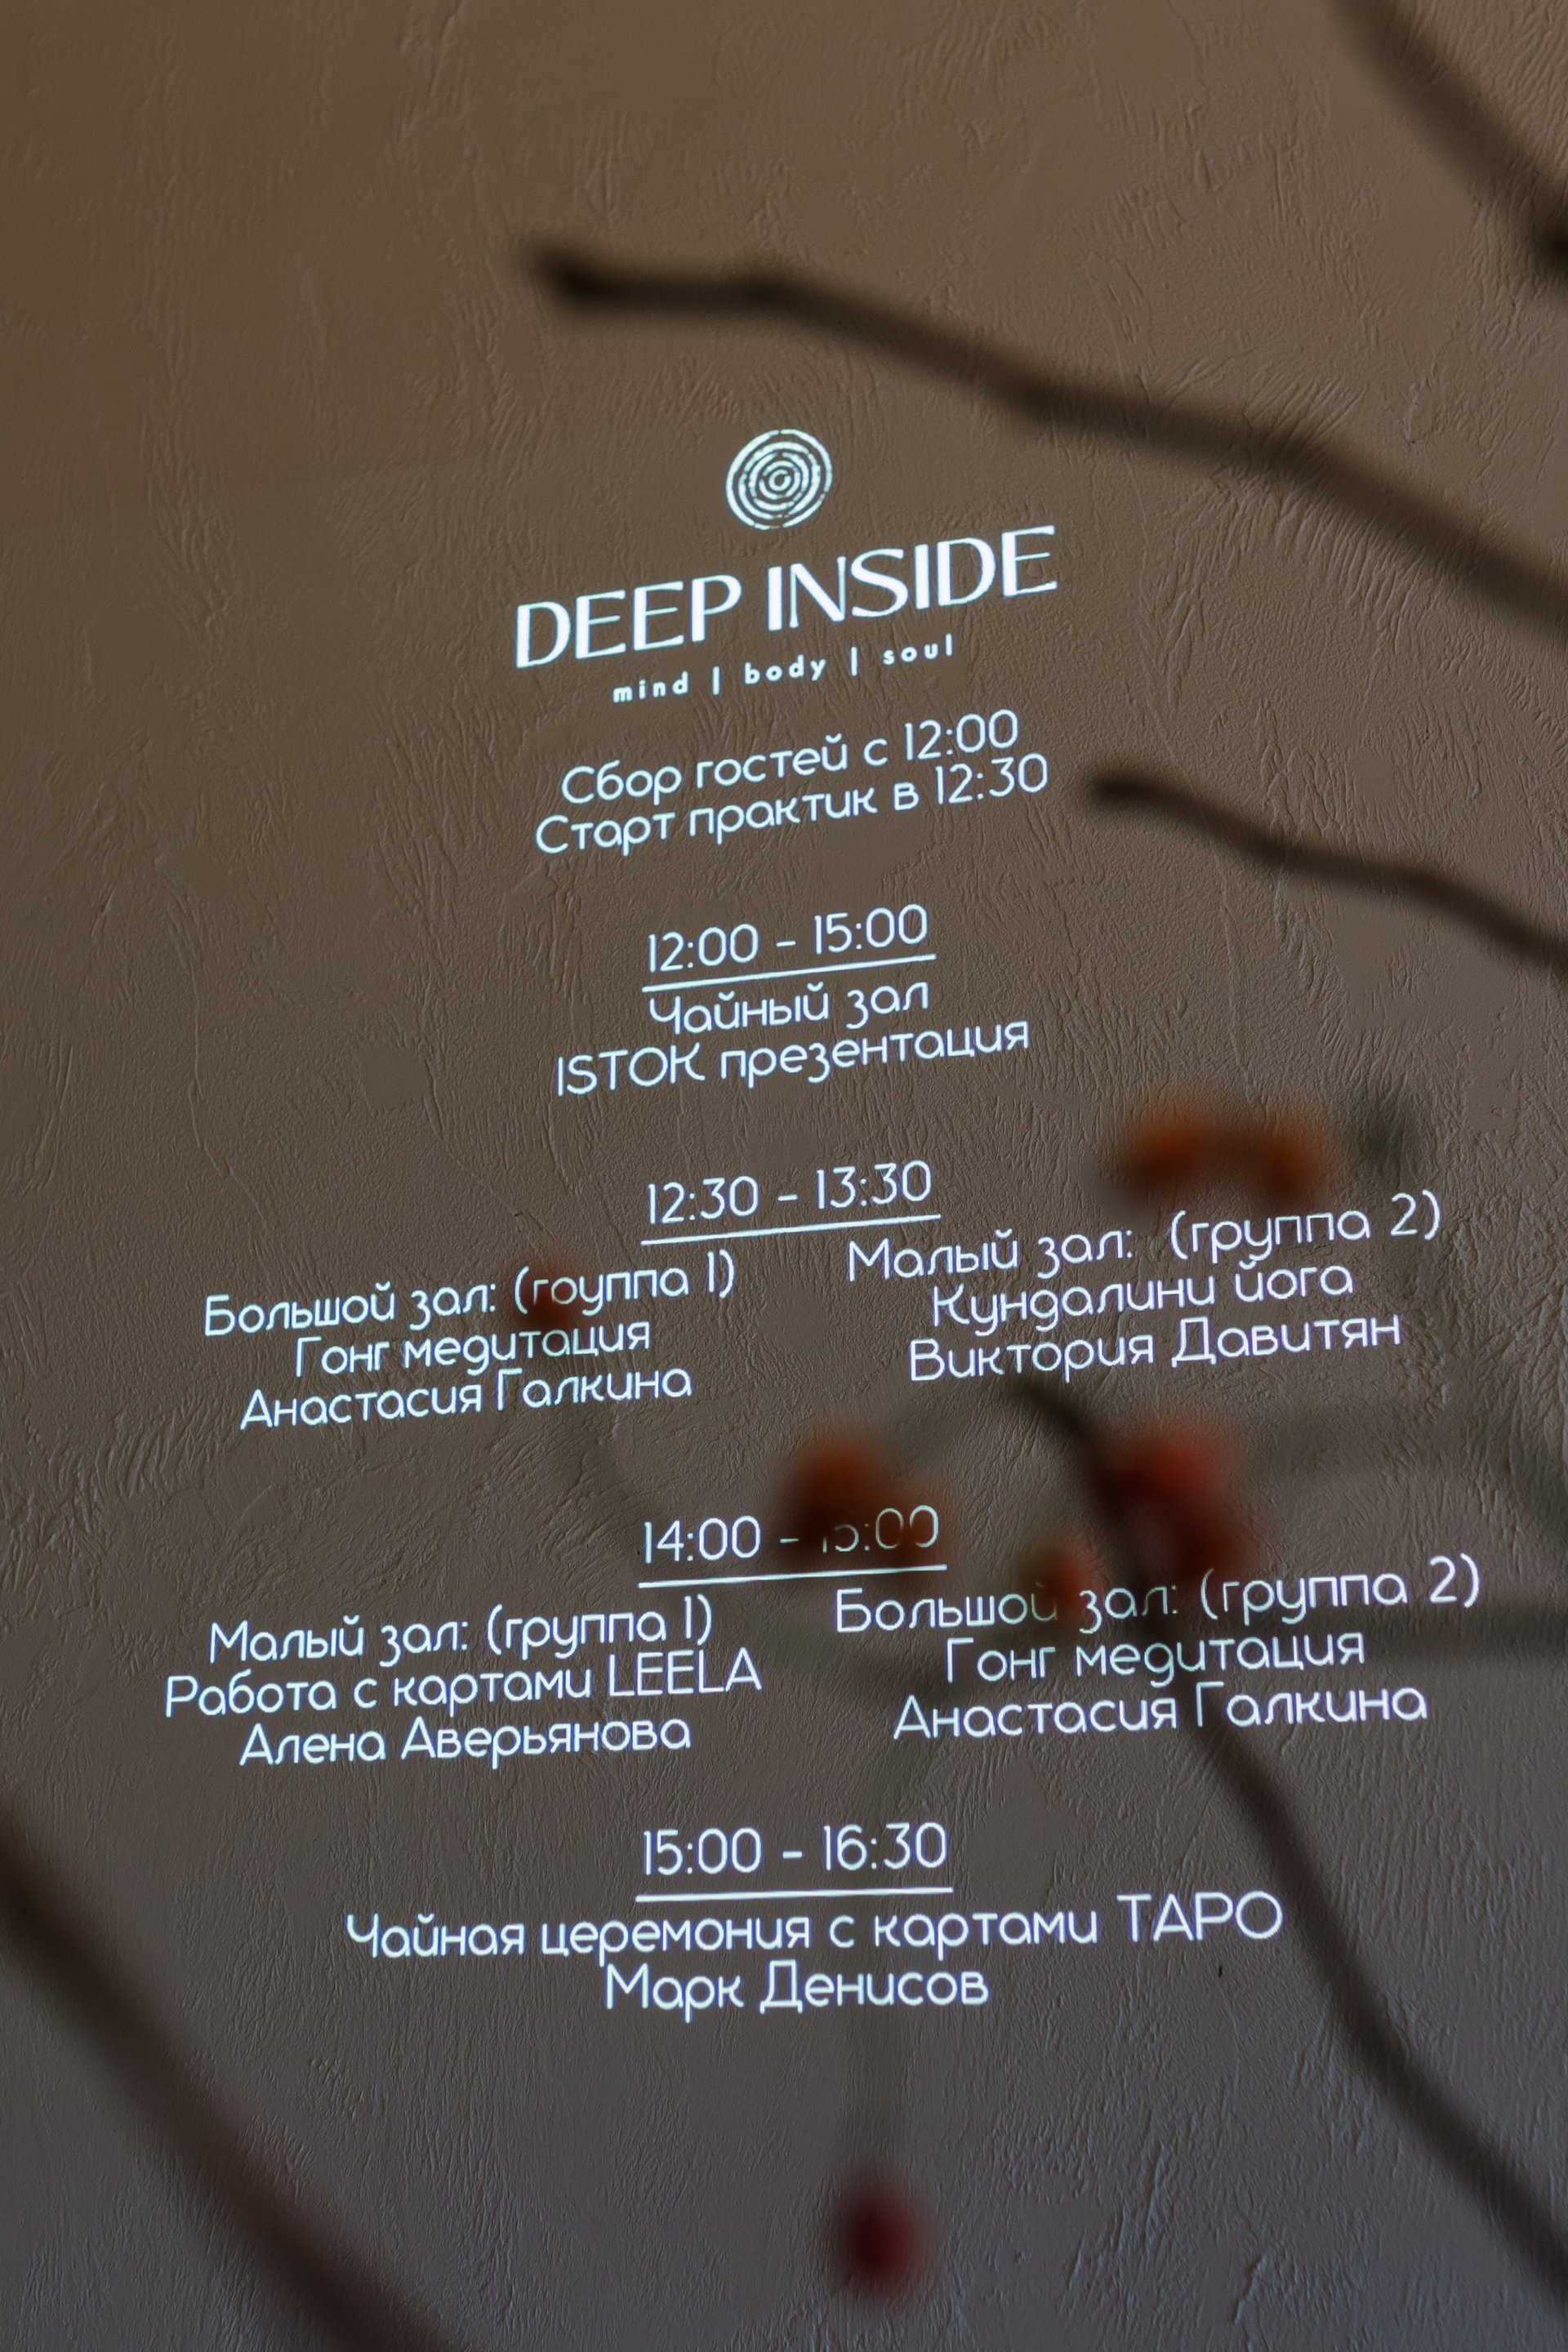 DEEP INSIDE
mind | body | soul
Сбор гостей с 12:00
Старт практик в 12:30
12:00 - 15:00
Чайный зал
ISTOK презентация
12:30 - 13:30
Большой зал: (группа 1)
Гонг медитация
Анастасия Галкина
Малый зал: (группа 2)
Кундалини йога
Виктория Давитян
14:00 - 15:00
Малый зал: (группа 1)
Работа с картами LEELA
Алена Аверьянова
Большой зал: (группа 2)
Гонг медитация
Анастасия Галкина
15:00 - 16:30
Чайная церемония с картами ТАРО
Марк Денисов